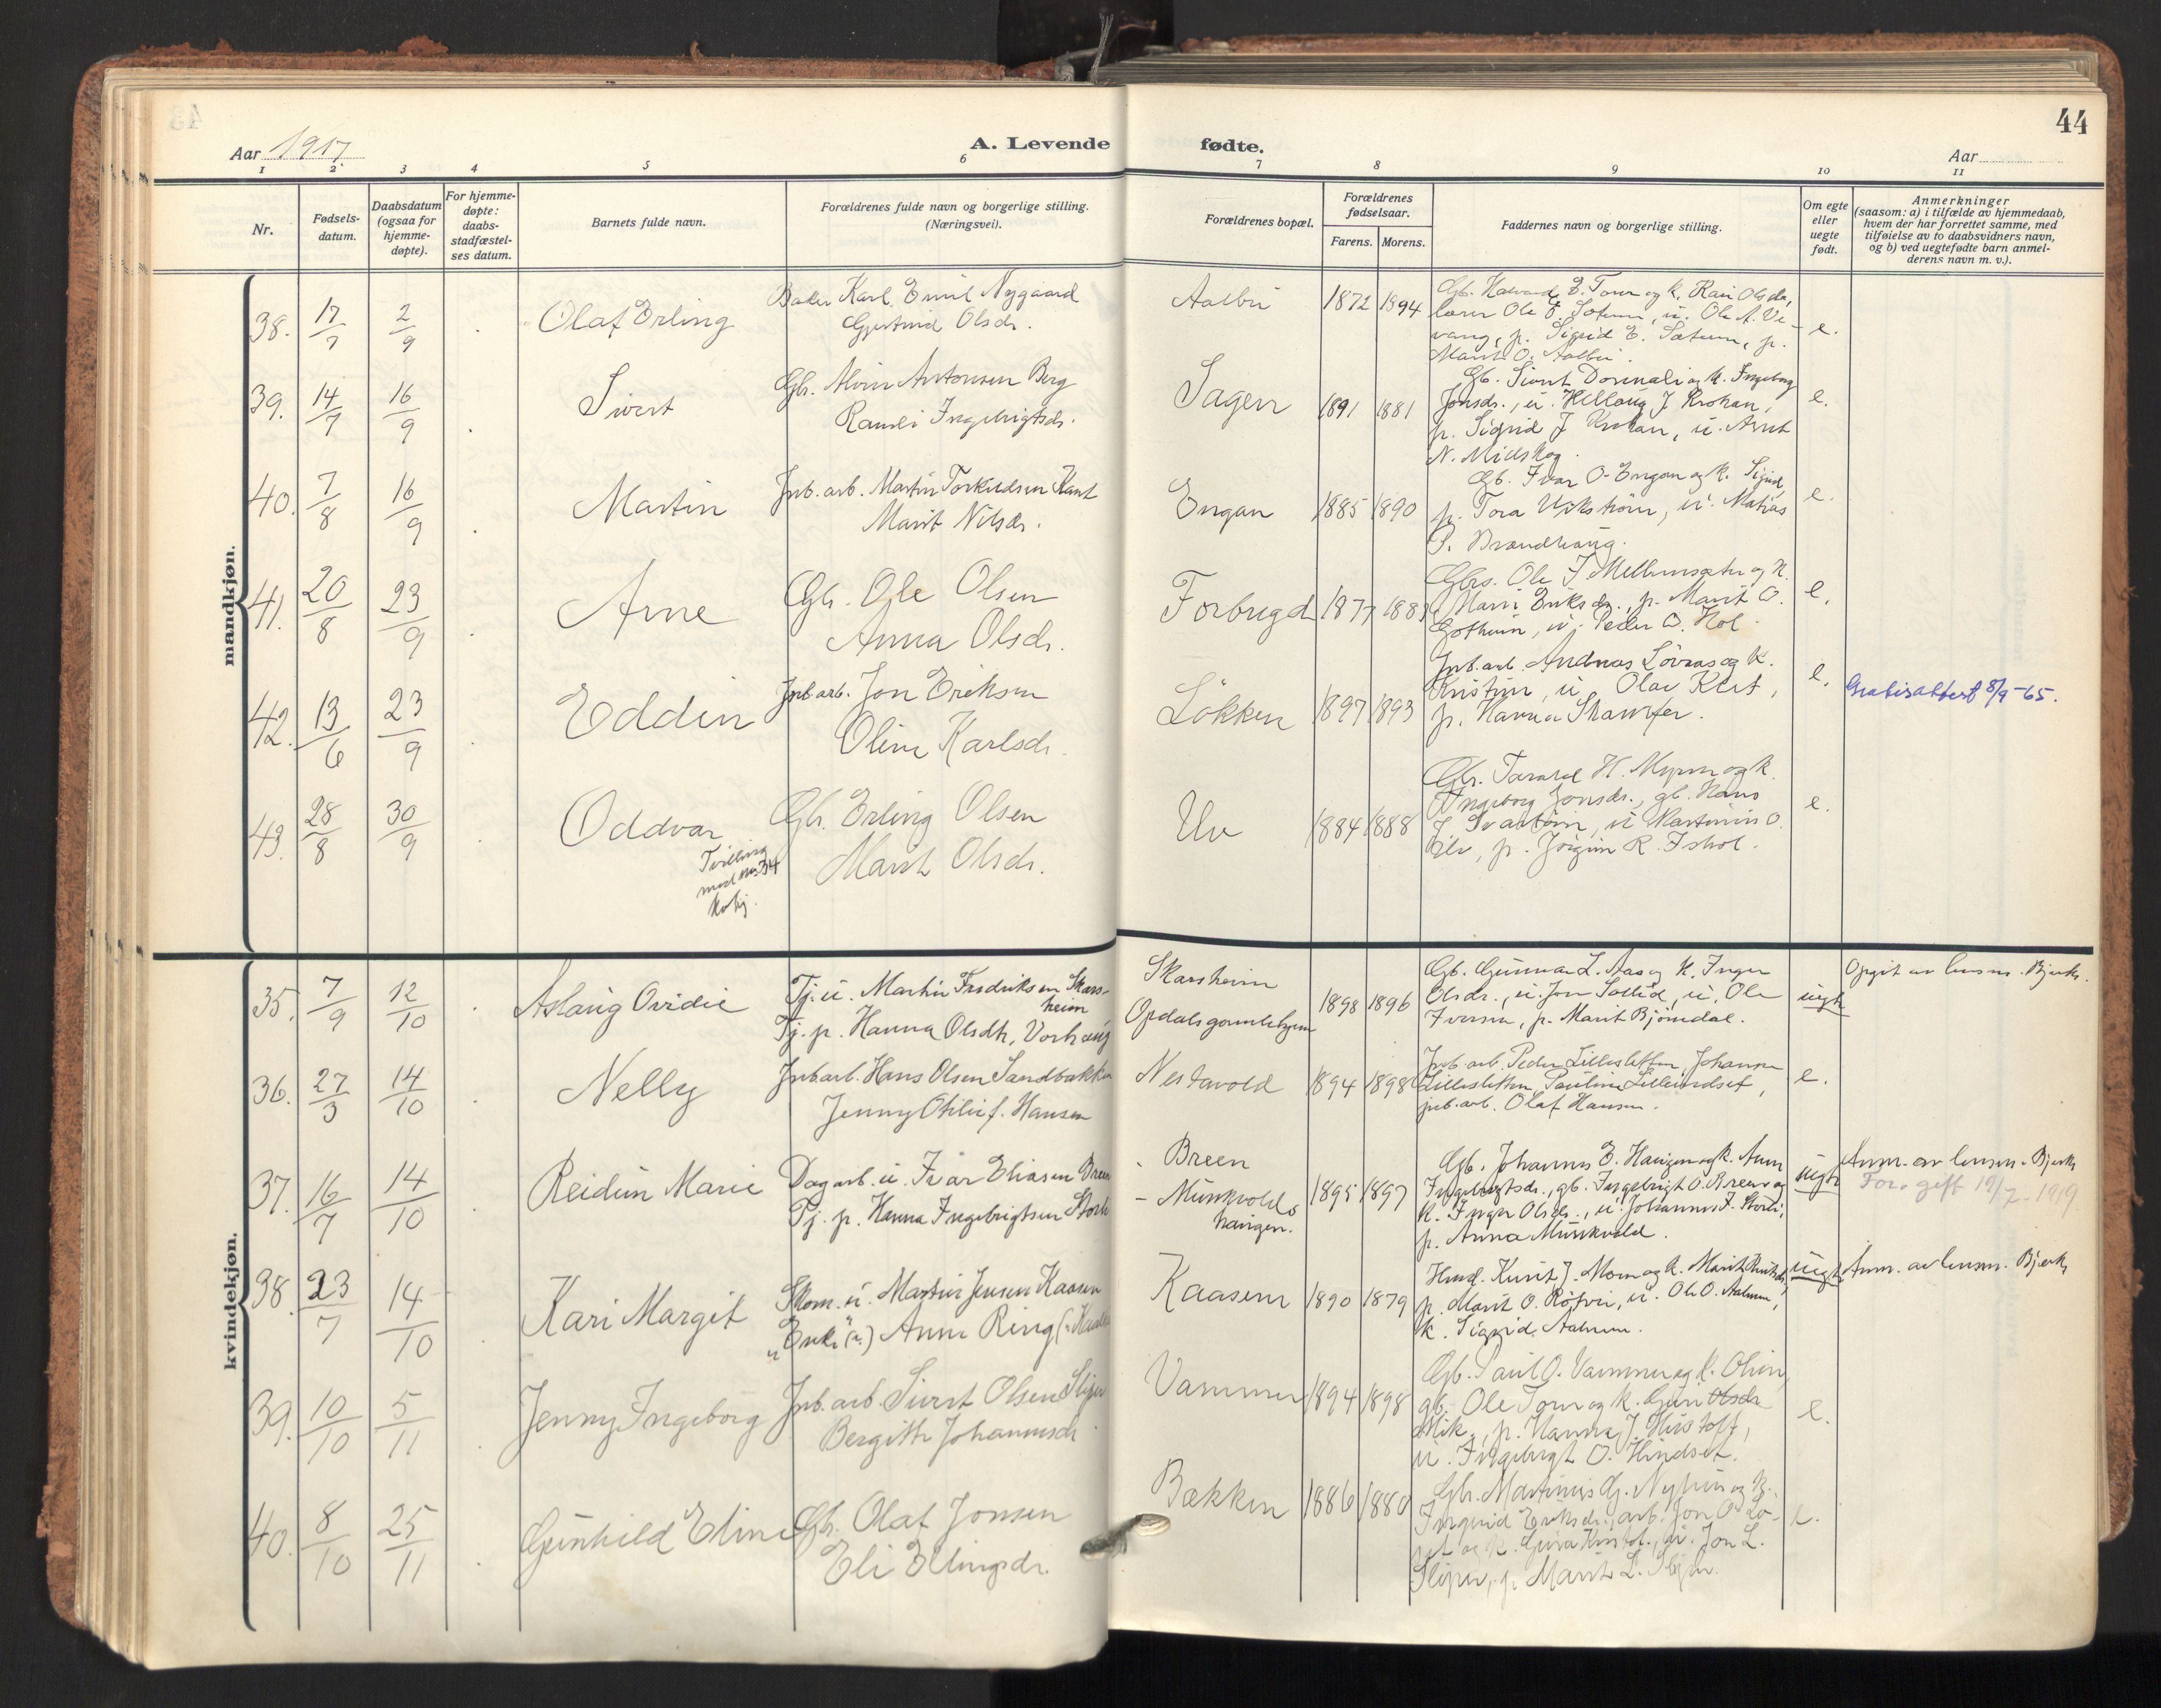 44
Aar 1917.
A. Levende fødte.
Aar
1 2 3 4 5 6 7 8 9 10 11
Nr.
Fødsels-
datum.
Daabsdatum
(ogsaa for
hjemme-
døpte).
For hjemme-
døpte:
daabs-
stadfæstel-
ses datum.
Barnets fulde navn.
Forældrenes fulde navn og borgerlige stilling.
(Næringsvei).
Forældrenes bopæl.
Forældrenes
fødselsaar.
Farens. Morens.
Faddernes navn og borgerlige stilling.
Om egte
eller
uegte
født.
Anmerkninger
(saasom: a) i tilfælde av hjemmedaab,
hvem der har forrettet samme, med
tilføielse av to daabsvidners navn,
og b) ved uegtefødte barn anmel-
derens navn m. v.).
mandkjøn.
38. 17/7 2/9 Olaf Erling
Baker Karl Emil Nygaard
Gjertrud Olsdr.
Aalbu 1872 1894
Gb. Halvard E. Tour og k. Kari Olsdr.,
lærer Ole E. Sætrum, u. Ole A. Vi-
vang, p. Sigrid E. Sætrum, p.
Marit O. Aalbu.
e.
39. 14/7 16/9 Sivert
Gbr. Alvin Antonsen Berg
Randi Ingebrigtsdr.
Sagen 1891 1881
Gb. Sivert Dornali og k. Ingeborg
Jonsdr., u. Hellaug J Krokan,
p. Sigrid J Krokan, u. Arnt
N. Midskog.
e.
40. 7/8 16/9 Martin
Jnb. arb. Martin Torkildsen Kant
Marit Nilsdr.
Engan 1885 1890
Gb. Ivar O. Engan og k. Sigrid,
p. Tora Vikstrøm, u. Matias
P. Brændhaug.
e.
41. 20/8 23/9 Arne
Gbr. Ole Olsen
Anna Olsdr.
Forbregd 1877 1883
Gbr. Ole J Mellemsæter og k.
Mari Eriksdr., p. Marit O.
Gotheim, u. Peder O. Hol.
e.
42. 13/6 23/9 Eddin
Jnb arb. Jon Eriksen
Oline Karlsdr.
Løkken 1897 1893
Jnb. arb. Andreas Løvaas og k.
Kristine, u. Olav Klet,
p. Hanna Skamfer.
e.
Gratisattest 8/9-65.
43. 28/8 30/9 Oddvar
Tvilling
med nr. 34
kvkj.
Gbr. Erling Olsen
Marit Olsdr.
Uv 1884 1888
Gbr. Tarald H. Myren og k.
Ingeborg Jonsdr., gb. Hans
J Svartøien, u. Martinus O.
Uv, p. Jørgine R. Ishol.
e.
kvindekjøn.
35. 7/9 12/10 Aslaug Ovidie
Tj. u. Martin Fredriksen Skars-
heim
Tj. p. Hanna Olsdtr, Vorhaug
Skarsheim
Opdals gammlehjem
1898 1896
Gb. Gunnar L. Aas og k. Inger
Olsdr., u. Jon Sollid, u. Ole
Iversen, p. Marit Bjørndal.
uegte
Opgit av lensm. Bjerke.
36. 27/3 14/10 Nelly
Jnb arb. Hans Olsen Sandbakken
Jenny Otilie f. Hansen
Nestavold 1894 1898
Jnb arb. Peder Lillesletten, Johanna
Lillesletten, Pauline Lillerindset,
jnb. arb. Olaf Hansen.
e.
37. 16/7 14/10 Reidun Marie
Dag arb. u. Ivar Eliasen Breen
Tj. p. Hanna Ingebrigtsen Storli
- Breen
- Munkvolds
haugen.
1895 1897
Gb. Johannes E. Haugen og k. Anne
Ingebrigtsdr., gb. Ingebrigt O. Breen og
k. Inger Olsdr., u. Johannes I. Storli,
p. Anna Munkvold.
uegte
Anm. av lensm. Bjerke
For. gift 19/7-1919
38. 23/7 14/10 Kari Margit
Skom. u. Martin Jensen Kaasen
"Enke (?)" Anne Ring
Kaasen 1890 1879
Husd. Knut J. Moen og k. Marit Knutsdr,
p. Marit O. Røtvei, u. Ole O. Aalmen,
k. Sigrid Aalmen.
uegte
Anm. av lensm. Bjerke
39. 10/10 5/11 Jenny Ingeborg
Jnb. arb. Sivert Olsen Sliper
Bergitte Johannesdr.
Vammer 1894 1898
Gb. Paul O. Vammer og k. Oline,
gb. Ole Tour og k. Guri Olsdr
Mik., p. Hanna J.
u. Ingebrigt O. Hindset.
e.
40. 8/10 25/11 Gunhild Eline
Gb. Olaf Jonsen
Eli Ellingsdr.
Bækken 1886 1880
Gb. Martinus G. Nyhus og k.
Ingrid Eriksdr., arb. Jon O. Lo-
set og k. Guria Knutsd., u. Jon L.
Sliper, p. Marit L. Sliper.
e.